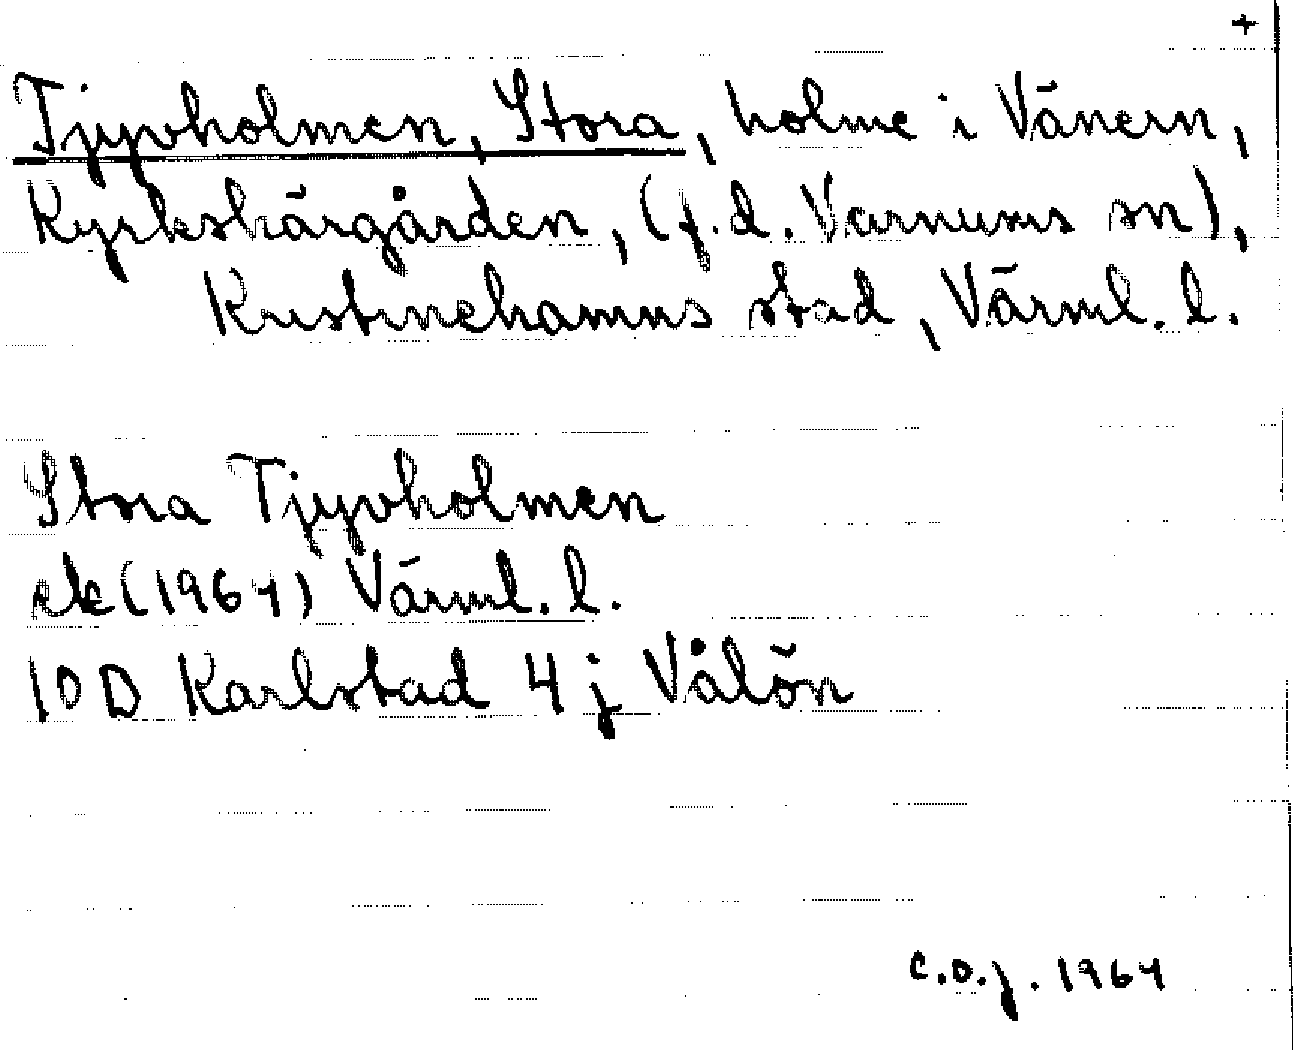 +
Tjyvholmen, Stora, holme i Vänern,
Kyrkskärgården, (f.d. Varnums sn),
Kristinehamns stad, Värml. l.
Stora Tjyvholmen
ek (1964) Värml. l.
10D Karlstad 4j Vålön
C.O.J. 1964